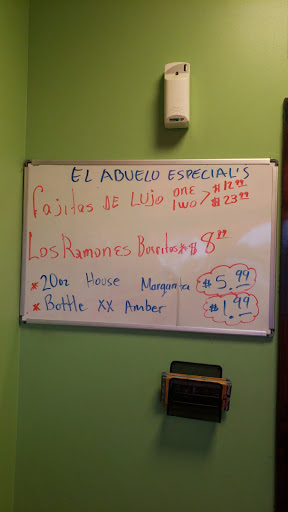 EL ABUELO ESPECIAL'S
Fajitas DE LUJO ONE > $12.99
TWO > $23.99
Los Ramones Burritos $8.99
* 20oz House Margarita $5.99
* Bottle XX Amber $1.99